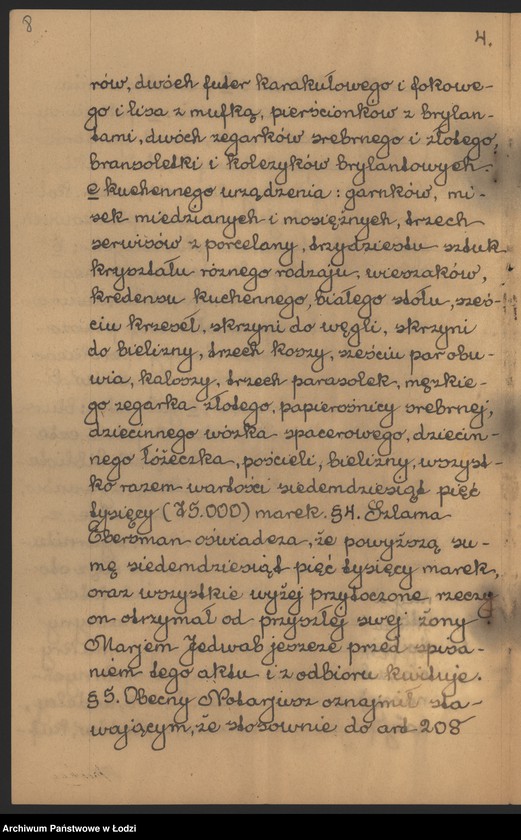 8
4.
rów, dwóch futer karakułowego i fokowe-
go i lisa z mufką, pierścionków z brylan-
tami, dwóch zegarków srebrnego i złotego,
bransoletki i kolczyków brylantowych.
e kuchennego urządzenia: garnków, mi-
sek miedzianych i mosiężnych, trzech
serwisów z porcelany, trzydziestu sztuk
kryształu różnego rodzaju, wieszaków,
kredensu kuchennego, białego stołu, sześ-
ciu krzeseł, skrzyni do węgli, skrzyni
do bielizny, trzech koszy, sześciu par obu-
wia, kaloszy, trzech parasolek, męzkie-
go zegarka złotego, papierośnicy srebrnej,
dziecinnego wózka spacerowego, dziecin-
nego łóżeczka, pościeli, bielizny, wszyst-
ko razem wartości siedemdziesiąt pięć
tysięcy (75.000) marek. § 4. Szlama
Ebersman oświadcza, że powyższą su-
mę siedemdziesiąt pięć tysięcy marek,
oraz wszystkie wyżej przytoczone rzeczy
on otrzymał od przyszłej swej żony
Maryem Jedwab jeszcze przed spisa-
niem tego aktu i z odbioru kwituje.
§ 5. Obecny Notarjusz oznajmił sta-
wającym, że stosownie do art 208
Archiwum Państwowe w Łodzi